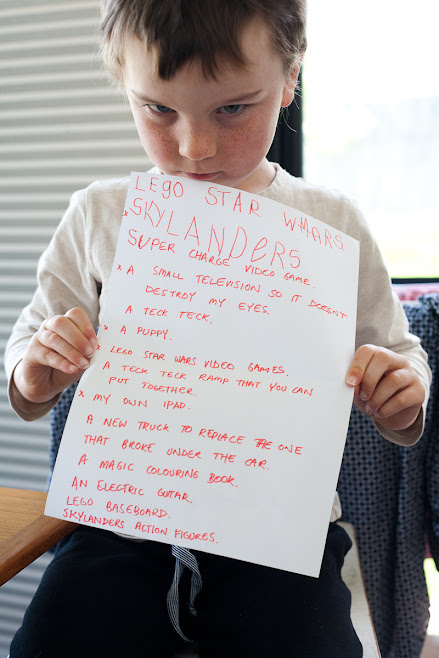 LEGO STAR WHARS
x SKYLANDERS
SUPER CHARGE VIDEO GAME.
x A SMALL TELEVISION SO IT DOESN'T
DESTROY MY EYES.
A TECK TECK.
x A PUPPY.
LEGO STAR WARS VIDEO GAMES.
A TECK TECK RAMP THAT YOU CAN
PUT TOGETHER.
x MY OWN IPAD.
A NEW TRUCK TO REPLACE THE ONE
THAT BROKE UNDER THE CAR.
A MAGIC COLOURING BOOK.
AN ELECTRIC GUITAR.
LEGO BASEBOARD.
SKYLANDERS ACTION FIGURES.